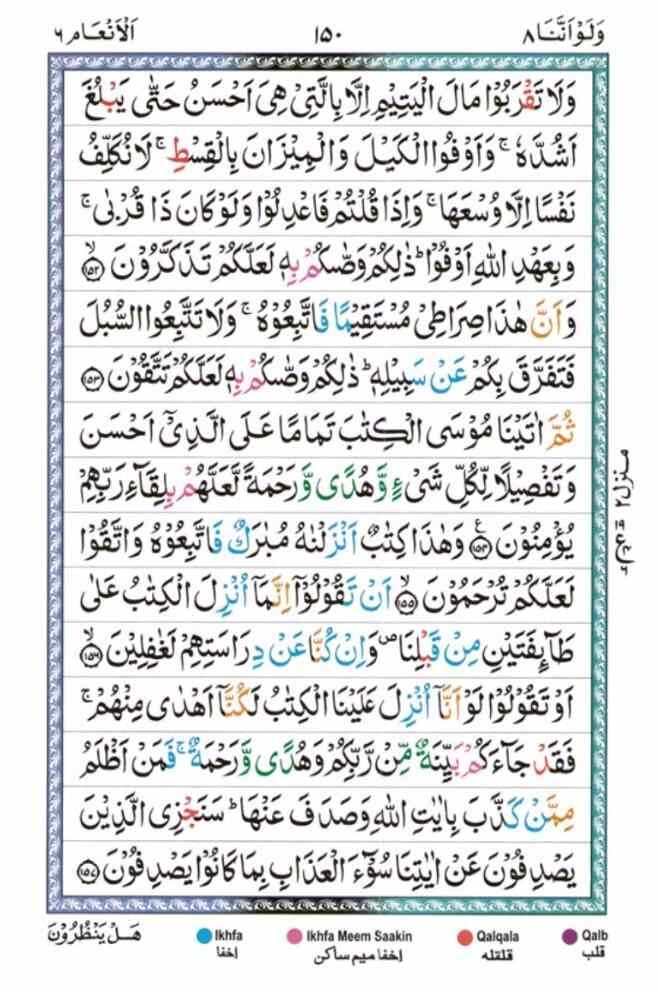 وَلَوْاَنَّنَا ٨
١٥٠
اَلْاَنْعَام ٦
وَلَا تَقْرَبُوْا مَالَ الْيَتِيْمِ اِلَّا بِالَّتِيْ هِيَ اَحْسَنُ حَتّٰى يَبْلُغَ
اَشُدَّهٗ ۚ وَاَوْفُوا الْكَيْلَ وَالْمِيْزَانَ بِالْقِسْطِ ۚ لَا نُكَلِّفُ
نَفْسًا اِلَّا وُسْعَهَا ۚ وَاِذَا قُلْتُمْ فَاعْدِلُوْا وَلَوْ كَانَ ذَا قُرْبٰى ۚ
وَبِعَهْدِ اللّٰهِ اَوْفُوْا ؕ ذٰلِكُمْ وَصّٰىكُمْ بِهٖ لَعَلَّكُمْ تَذَكَّرُوْنَ ۙ‏﴿۱۵۲﴾
وَاَنَّ هٰذَا صِرَاطِيْ مُسْتَقِيْمًا فَاتَّبِعُوْهُ ۚ وَلَا تَتَّبِعُوا السُّبُلَ
فَتَفَرَّقَ بِكُمْ عَنْ سَبِيْلِهٖ ؕ ذٰلِكُمْ وَصّٰىكُمْ بِهٖ لَعَلَّكُمْ تَتَّقُوْنَ ﴿۱۵۳﴾
ثُمَّ اٰتَيْنَا مُوْسَى الْكِتٰبَ تَمَامًا عَلَى الَّذِيْٓ اَحْسَنَ
وَتَفْصِيْلًا لِّكُلِّ شَيْءٍ وَّهُدًى وَّرَحْمَةً لَّعَلَّهُمْ بِلِقَآءِ رَبِّهِمْ
يُؤْمِنُوْنَ ﴿۱۵۴﴾ۧ وَهٰذَا كِتٰبٌ اَنْزَلْنٰهُ مُبٰرَكٌ فَاتَّبِعُوْهُ وَاتَّقُوْا
لَعَلَّكُمْ تُرْحَمُوْنَ ۙ‏﴿۱۵۵﴾ اَنْ تَقُوْلُوْٓا اِنَّمَآ اُنْزِلَ الْكِتٰبُ عَلٰى
طَآىِٕفَتَيْنِ مِنْ قَبْلِنَا ۪ وَاِنْ كُنَّا عَنْ دِرَاسَتِهِمْ لَغٰفِلِيْنَ ۙ‏﴿۱۵۶﴾
اَوْ تَقُوْلُوْا لَوْ اَنَّآ اُنْزِلَ عَلَيْنَا الْكِتٰبُ لَكُنَّآ اَهْدٰى مِنْهُمْ ۚ
فَقَدْ جَآءَكُمْ بَيِّنَةٌ مِّنْ رَّبِّكُمْ وَهُدًى وَّرَحْمَةٌ ۚ فَمَنْ اَظْلَمُ
مِمَّنْ كَذَّبَ بِاٰيٰتِ اللّٰهِ وَصَدَفَ عَنْهَا ؕ سَنَجْزِي الَّذِيْنَ
يَصْدِفُوْنَ عَنْ اٰيٰتِنَا سُوْٓءَ الْعَذَابِ بِمَا كَانُوْا يَصْدِفُوْنَ ﴿۱۵۷﴾
منزل ٢
هَلْ يَنْظُرُوْنَ
Ikhfa
Ikhfa Meem Saakin
Qalqala
Qalb
اخفا
اخفا میم ساکن
قلقله
قلب